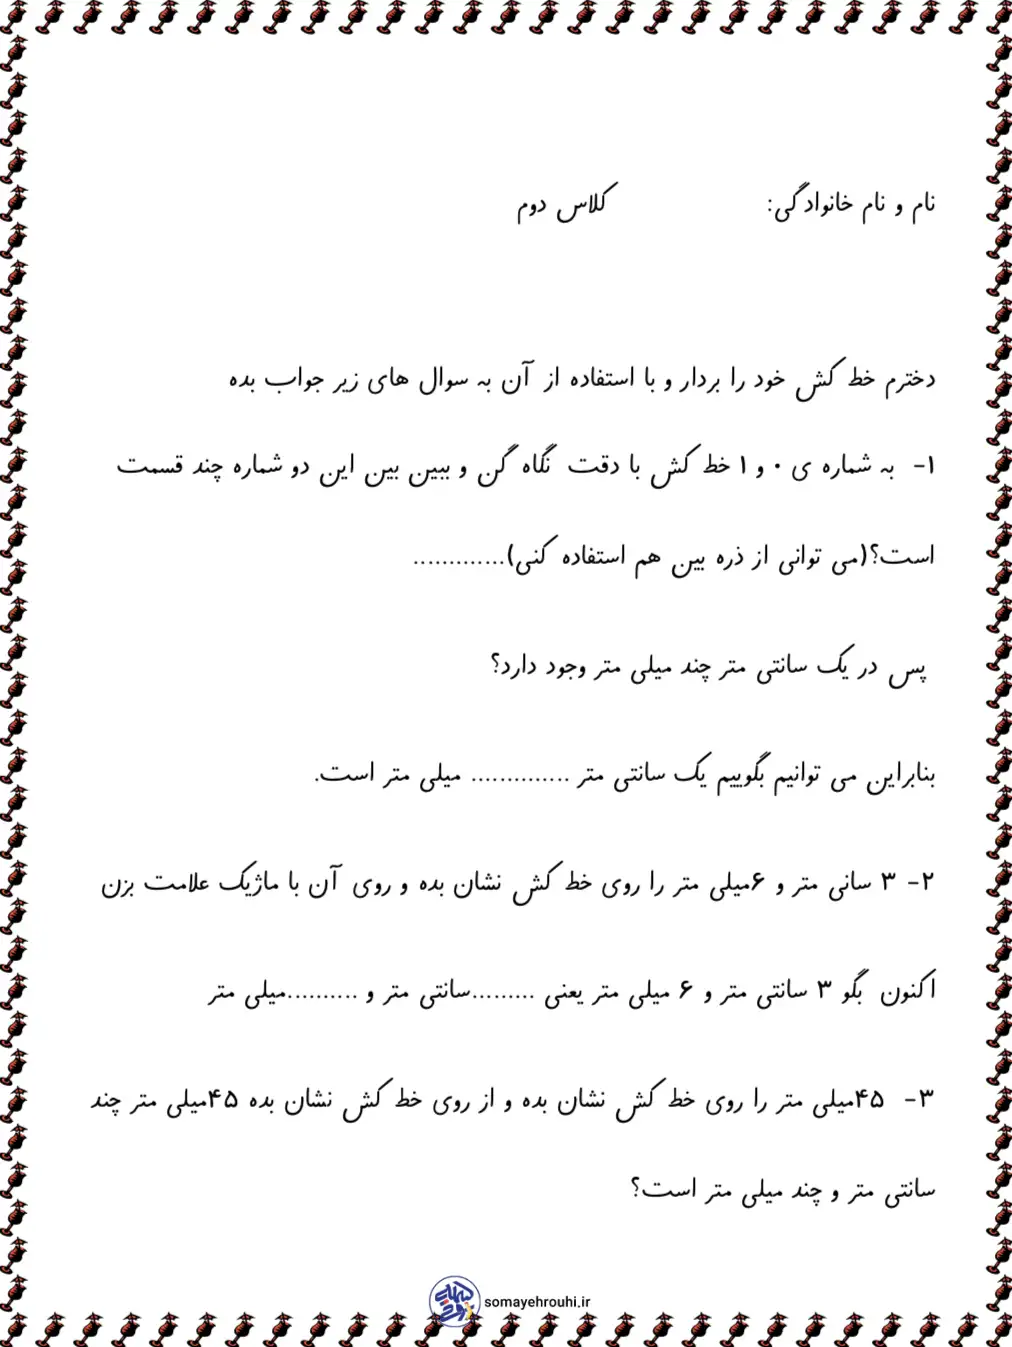 نام و نام خانوادگی: کلاس دوم
دخترم خط کش خود را بردار و با استفاده از آن به سوال های زیر جواب بده
۱- به شماره ی ۰ و ۱ خط کش با دقت نگاه کن و ببین بین این دو شماره چند قسمت
است؟(می توانی از ذره بین هم استفاده کنی).............
پس در یک سانتی متر چند میلی متر وجود دارد؟
بنابراین می توانیم بگوییم یک سانتی متر .............. میلی متر است.
۲- ۳ سانی متر و ۶میلی متر را روی خط کش نشان بده و روی آن با ماژیک علامت بزن
اکنون بگو ۳ سانتی متر و ۶ میلی متر یعنی .........سانتی متر و ..........میلی متر
۳- ۴۵میلی متر را روی خط کش نشان بده و از روی خط کش نشان بده ۴۵میلی متر چند
سانتی متر و چند میلی متر است؟
سمیه روحی somayehrouhi.ir